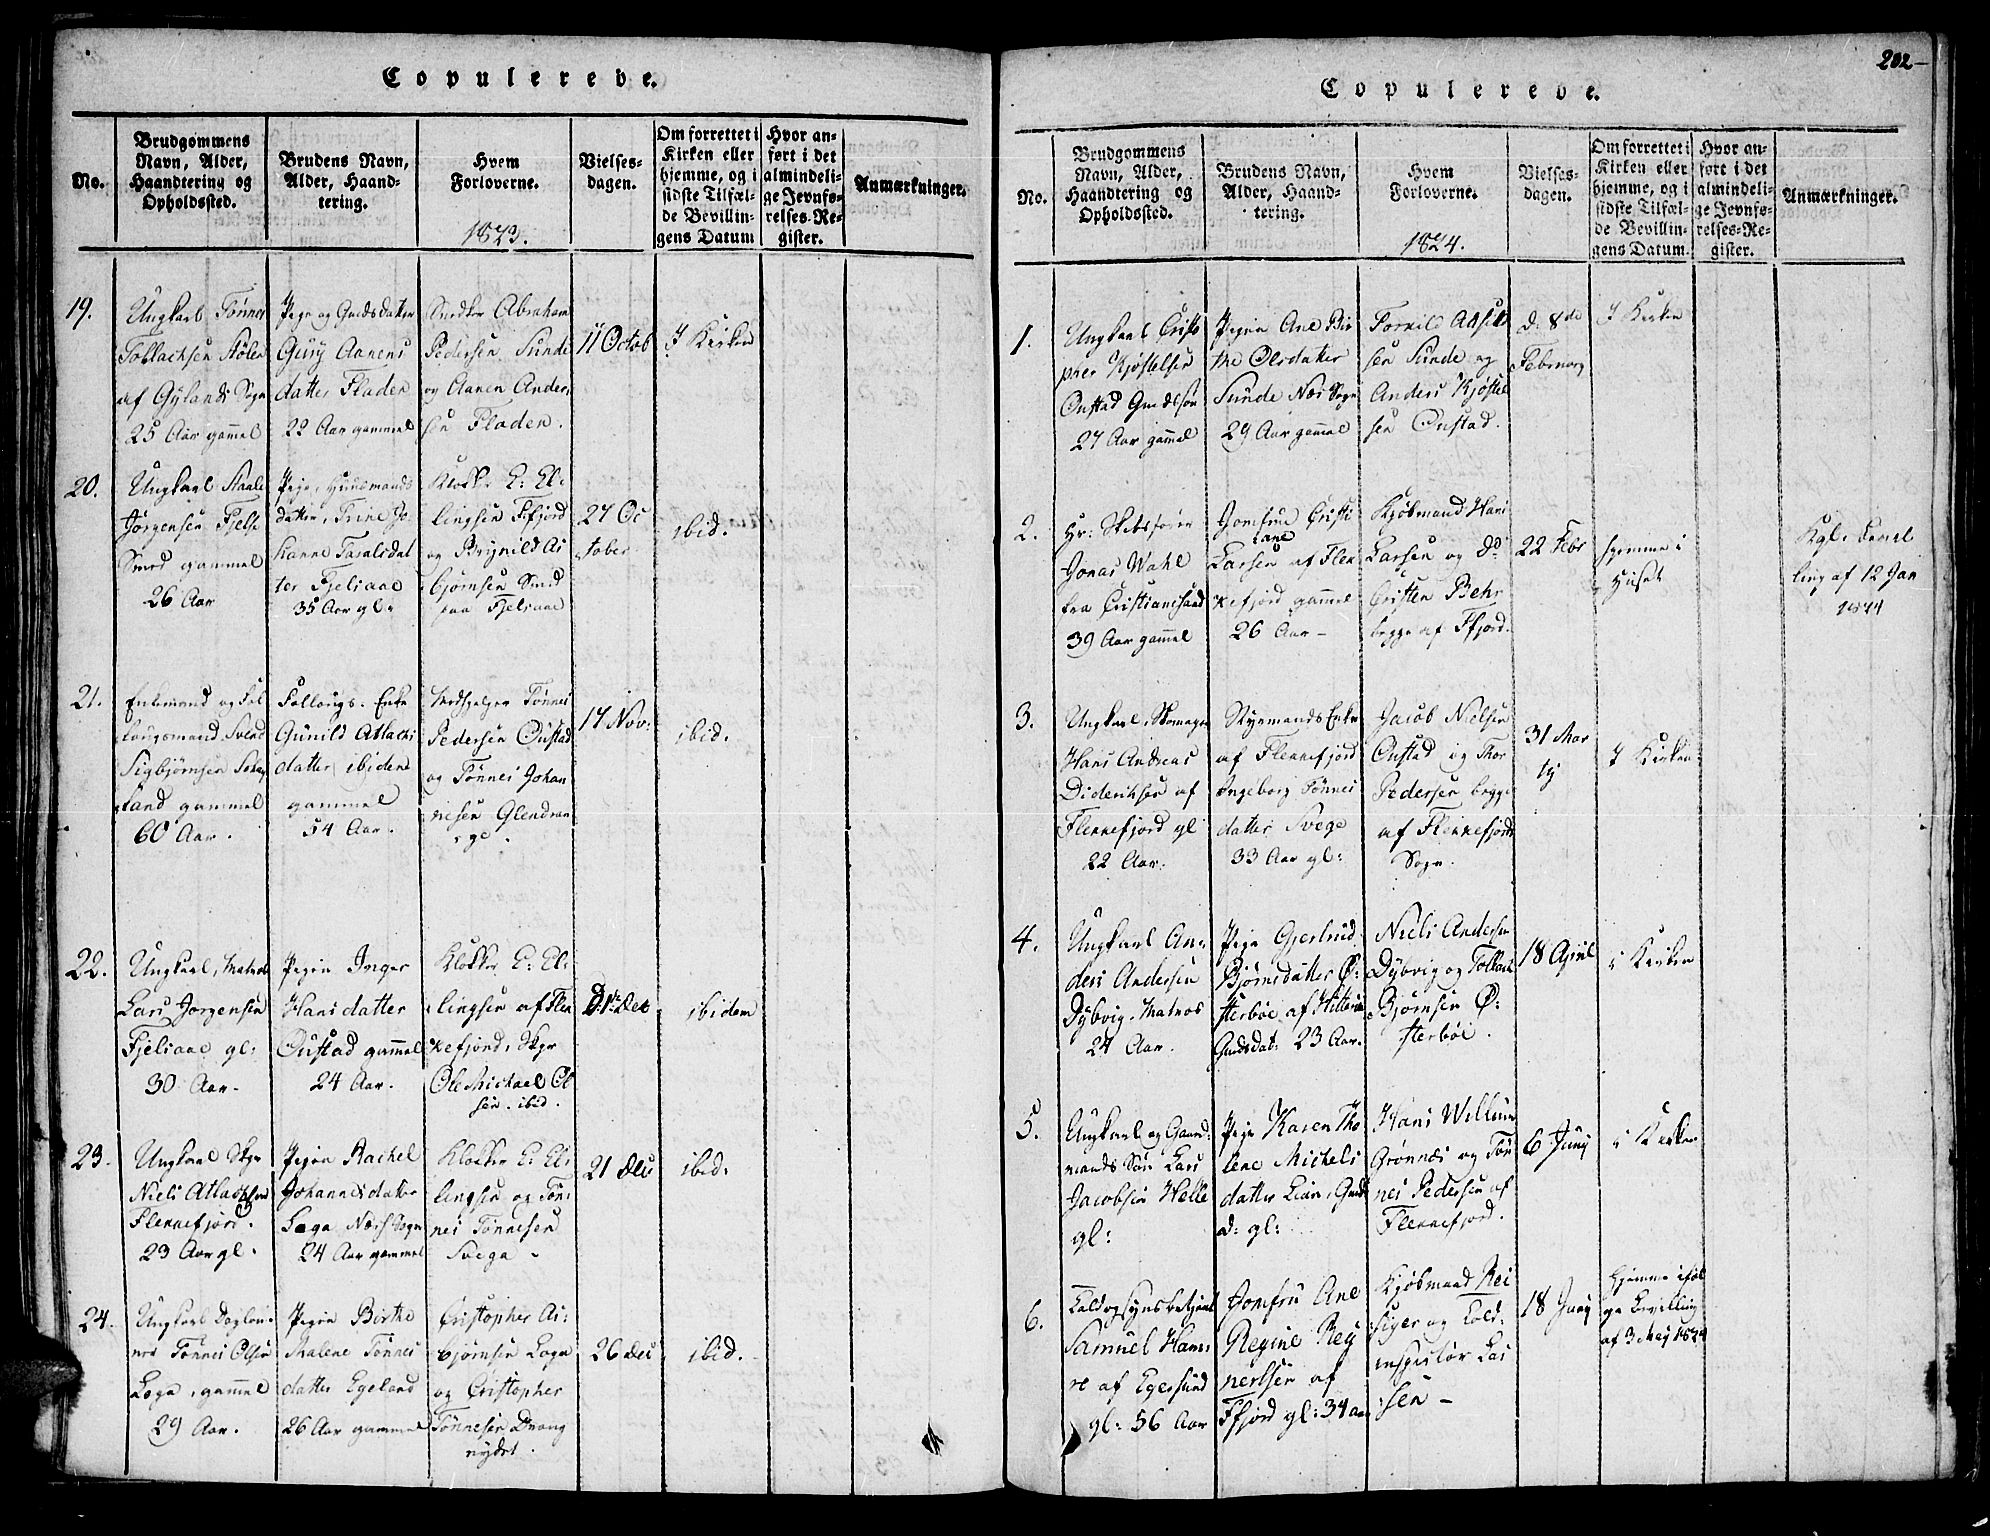 Copulerede.
No.
Brudgommens
Navn, Alder,
Haandtering og
Opholdssted.
Brudens Navn,
Alder, Haand-
tering.
Hvem
Forloverne.
1823.
Vielses-
dagen.
Om forrettet i
Kirken eller
hjemme, og i
sidste Tilfæl-
de Bevillin-
gens Datum
Hvor an-
ført i det
almindeli-
ge Jevnfø-
relses-Re-
gister.
Anmærkninger.
19.
Ungkarl Tønnes
Tollachsen Stølen
af Gylands Sogn
25 Aar gammel
Pige og Gaardsdatter
Gury Aanens
datter Fladen
22 Aar gammel
Snedker Abraham
Pedersen Sunde
og Aanen Ander
sen Fladen.
11 Octob
I Kirken
20.
Ungkarl Staale
Jørgensen Fjelse
Smed gammel
26 Aar
Pige, Huusmands
datter, Trine Jo
hanne Taralsdat
ter Fjelsaae
35 Aar gl.
Klokker E: El:
lingsen Ffjord
og Brynild As
bjørnsen Smed
paa Fjelsaae
27 Oc
tober
ibid.
21.
Enkemand og Fol
lougsmand Svend
Sigbjørnsen
land gammel
60 Aar.
Follougs-Enke
Gunild Atlachs
datter ibidem
gammel
54 Aar.
Tønnes
Pedersen Oustad
og Tønnes Johan
nesen Glendran
ge.
17 Nov:
ibid.
22.
Ungkarl, Matros
Lars Jørgensen
Fjelsaae gl:
30 Aar.
Pigen Inger
Hansdatter
Oustad gammel
24 Aar.
Klokker E: El:
lingsen af Flek
kefjord, Skpr
Ole Michael Ol
sen ibid.
D. 1te Dec
ibidem
23.
Ungkarl Skpr
Niels Atlachsen
Flekkefjord.
23 Aar gl.
Pigen Rachel
Johannesdatter
Loga Næs Sogn
24 Aar gammel
Klokker E: El:
lingsen og Tøn:
nes Tønnesen
Svega
21 Dec
ibid.
24.
Ungkarl Dagløn:
ner Tønnes Olsen
Loga, gammel
29 Aar.
Pigen Birthe
Malene Tønnes
datter Egeland
26 Aar gammel
Christopher As:
bjørnsen Loga
og Christopher
Tønnesen Drang
nydet.
26 Dec
ibid.
202
Copulerede.
No.
Brudgommens
Navn, Alder,
Haandtering og
Opholdssted.
Brudens Navn,
Alder, Haand-
tering.
Hvem
Forloverne.
1824.
Vielses-
dagen.
Om forrettet i
Kirken eller
hjemme, og i
sidste Tilfæl-
de Bevillin-
gens Datum.
Hvor an-
ført i det
almindeli-
ge Jevnfø-
relses-Re-
gister.
Anmærkninger.
1.
Ungkarl Cristo
pher Kjøstelsen
Oustad Gaardssøn
27 Aar gammel
Pigen Ane Bir
the Olsdatter
Sunde Næs Sogn
29 Aar gammel
Tornild Adse
sen Sunde og
Anders Kjøstel
sen Oustad.
d: 8de
Februarij
I Kirken
2.
Hr: Skibsfører
Jonas Wahl
fra Cristiansand
39 Aar gammel
Jomfrue Cristi
ane
Larsen af Flek
kefjord gammel
26 Aar
Kjøbmand Hans
Larsen og Do
Cristen Behr
begge af Ffjord.
22 Febr
hjemme i
Huset
Kgl. Bevil
ling af 12 Jan
1824
3.
Ungkarl, Skomager
Hans Andreas
Dideriksen af
Flekkefjord gl
22 Aar.
Styrmands Enke
af Flekkefjord
Ingeborg Tønnes
datter Svege
33 Aar gl:
Jacob Nielsen
Oustad og Thor
Pedersen begge
af Flekkefjords
Sogn.
31 Mar
tij
I Kirken
4.
Ungkarl An:
ders Andersen
Dybvig, Matros
24 Aar.
Pige Gjertrud
Bjørnsdatter Ø:
sterbøe af Hitterøe
Gaardsdat: 23 Aar.
Niels Andersen
Dybvig og Tollach
Bjørnsen Ø:
sterbøe.
18 April
i Kirken
5.
Ungkarl og Gaard:
mands Søn Lars
Jacobsen Helle
gl:
Pige Karen Tho
lene Michels
datter Lien, Gaards
d: gl:
Hans Willum
Grønnæs og Tøn
nes Pedersen af
Flekkefjord.
6 Junij
i Kirken
6.
Toldogsynsbetjent
Samuel Hans
af Egersund
gl: 56 Aar
Jomfru Ane
Regine Rey
nertsen af
Ffjord gl: 34 aar
Kjøbmand Rei
siger og Told:
inspectør Las
sen
18 Junij
Hjemme iføl
ge Bevilling
af 3 May 1824